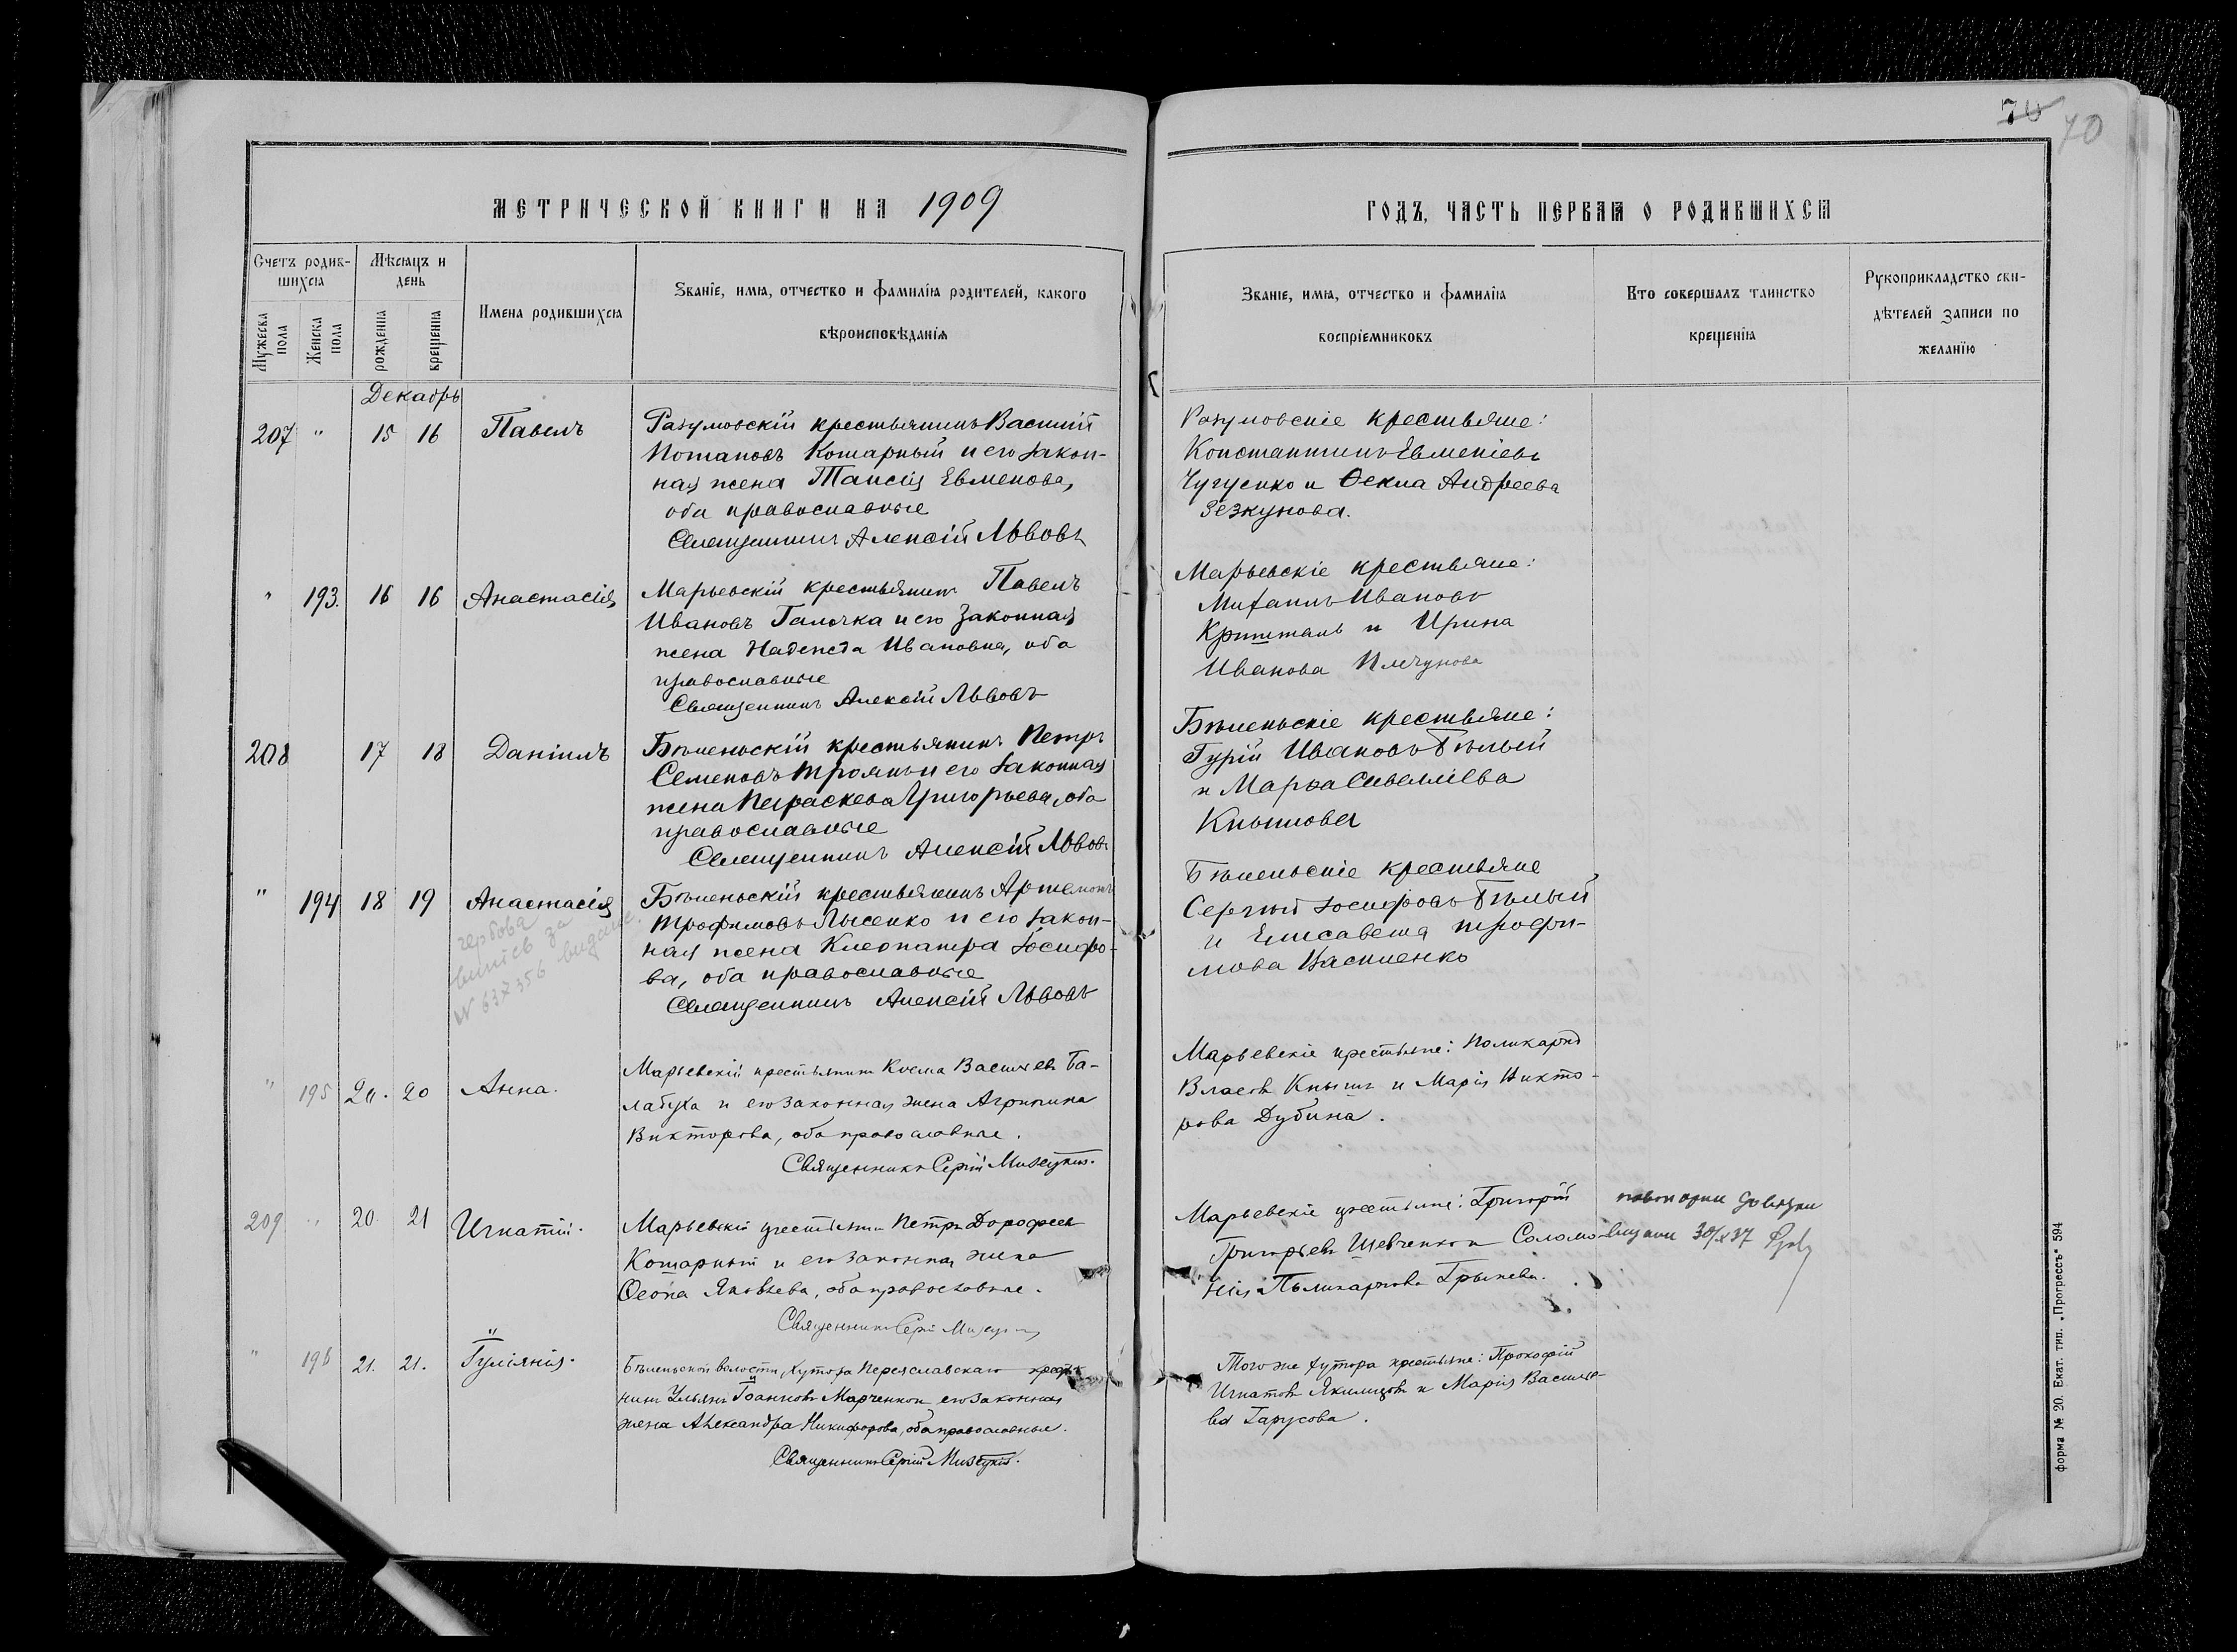 70 70
МЕТРИЧЕСКОЙ КНИГИ НА 1909
ГОДЪ, ЧАСТЬ ПЕРВАЯ О РОДИВШИХСЯ
Счетъ родив-
шихся
Мужеска пола
Женска пола
Мѣсяцъ и
день
рожденія
крещенія
Имена родившихся
Званіе, имя, отчество и фамилія родителей, какого
вѣроисповѣданія
Званіе, имя, отчество и фамилія
воспріемниковъ
Кто совершалъ таинство
крещенія
Рукоприкладство сви-
дѣтелей записи по
желанію
Декабрь
207 " 15 16 Павелъ
Разумовскій крестьянинъ Василій
Потаповъ Котарный и его закон-
ная жена Таисія Евменова,
оба православные
Священникъ Алексій Львовъ
Разумовскіе крестьяне:
Константинъ Евменіевъ
Чугуенко и Ѳекла Андреева
Зезкунова.
" 193. 16 16 Анастасія
Марьевскій крестьянинъ Павелъ
Ивановъ Галочка и его законная
жена Надежда Ивановна, оба
православные
Священникъ Алексій Львовъ
Марьевскіе крестьяне:
Михаилъ Ивановъ
и Ирина
Иванова
208 17 18 Даніилъ
Бѣленьскій крестьянинъ Петръ
Семеновъ Троянъ и его законная
жена Параскева Григорьева, оба
православные
Священникъ Алексій Львовъ
Бѣленьскіе крестьяне:
Гурій Ивановъ Бѣлый
и Марѳа Савелліева
Кнышова
" 194 18 19 Анастасія
Бѣленьскій крестьянинъ Артемонъ
Трофимовъ Лысенко и его закон-
ная жена Клеопатра Іосифо-
ва, оба православные
Священникъ Алексій Львовъ
Бѣленьскіе крестьяне
Сергѣй Іосифовъ Бѣлый
и Елисавета Трофи-
мова Василенко
за
N 637356
" 195 20. 20 Анна.
Марьевскій крестьянинъ Косма Васильевъ Ба-
лабуха и его законная жена Агрипина
Викторова, оба православные.
Священникъ Сергій
Марьевскіе крестьяне: Поликарпъ
Власовъ Кнышъ и Марія Викто-
рова Дубина.
209 " 20. 21 Игнатій.
Марьевскій крестьянинъ Петръ Дорофеевъ
Котарный и его законная жена
Яковлева, оба православные.
Священникъ Сергій
Марьевскіе крестьяне: Григорій
Григорьевъ Шевченко и Соломо-
нія Поликарпова
повторни довідки
видани 30/X 37
" 196 21. 21. Іуліянія.
Бѣленьской волости, хутора Переяславскаго кресть
нинъ Ульянъ Іоанновъ Марченко и его законная
жена Александра Никифорова, оба православные.
Священникъ Сергій
Того же хутора крестьяне: Прокофій
Игнатовъ Якимцовъ и Марія Василье-
ва Гарусова.
Форма № 20. Екат. тип. „Прогрессъ“ 594